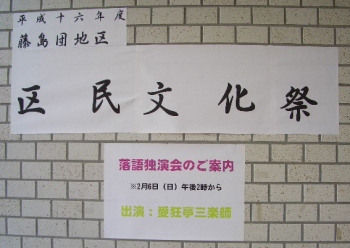 平成十六年度
藤島団地区
区民文化祭
落語独演会のご案内
※2月6日（日）午後2時から
出演：愛狂亭三楽師